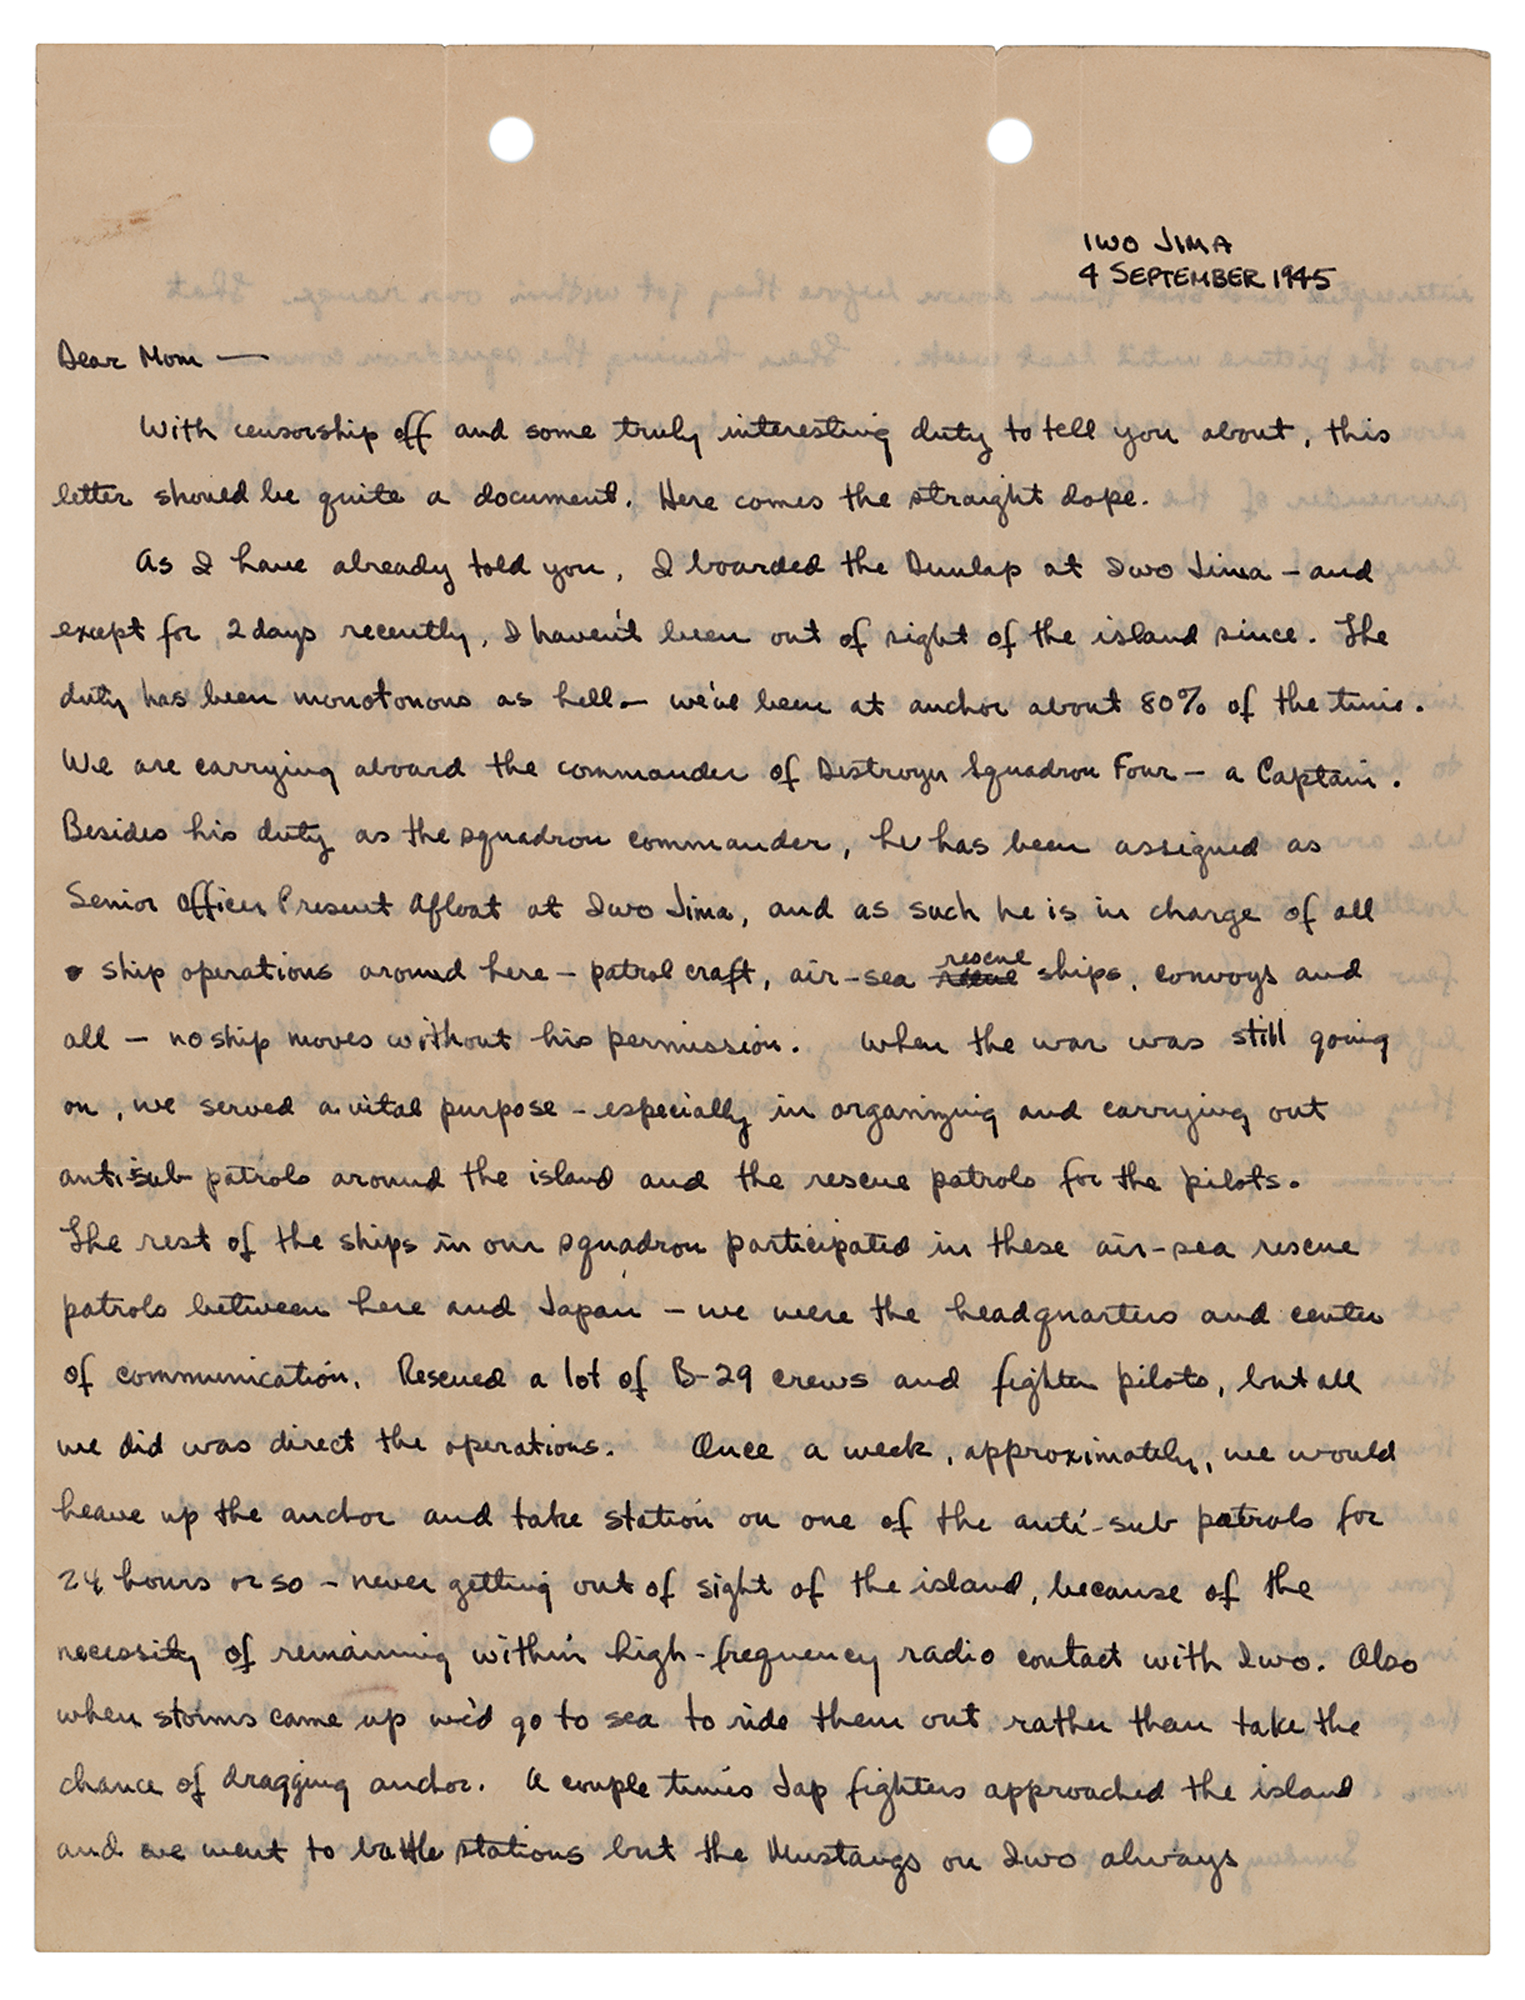 IWO JIMA
4 SEPTEMBER 1945
Dear Mom —
With censorship off and some truly interesting duty to tell you about, this
letter should be quite a document. Here comes the straight dope.
As I have already told you, I boarded the Dunlap at Iwo Jima – and
except for 2 days recently, I haven't been out of sight of the island since. The
duty has been monotonous as hell – we've been at anchor about 80% of the time.
We are carrying aboard the commander of Destroyer Squadron Four – a Captain.
Besides his duty as the squadron commander, he has been assigned as
Senior Officer Present Afloat at Iwo Jima, and as such he is in charge of all
ship operations around here – patrol craft, air-sea rescue ships, convoys and
all – no ship moves without his permission. When the war was still going
on, we served a vital purpose – especially in organizing and carrying out
anti-sub patrols around the island and the rescue patrols for the pilots.
The rest of the ships in our squadron participated in these air-sea rescue
patrols between here and Japan – we were the headquarters and center
of communication. Rescued a lot of B-29 crews and fighter pilots, but all
we did was direct the operations. Once a week, approximately, we would
heave up the anchor and take station on one of the anti-sub patrols for
24 hours or so – never getting out of sight of the island, because of the
necessity of remaining within high-frequency radio contact with Iwo. Also
when storms came up we'd go to sea to ride them out rather than take the
chance of dragging anchor. A couple times Jap fighters approached the island
and we went to battle stations but the Mustangs on Iwo always